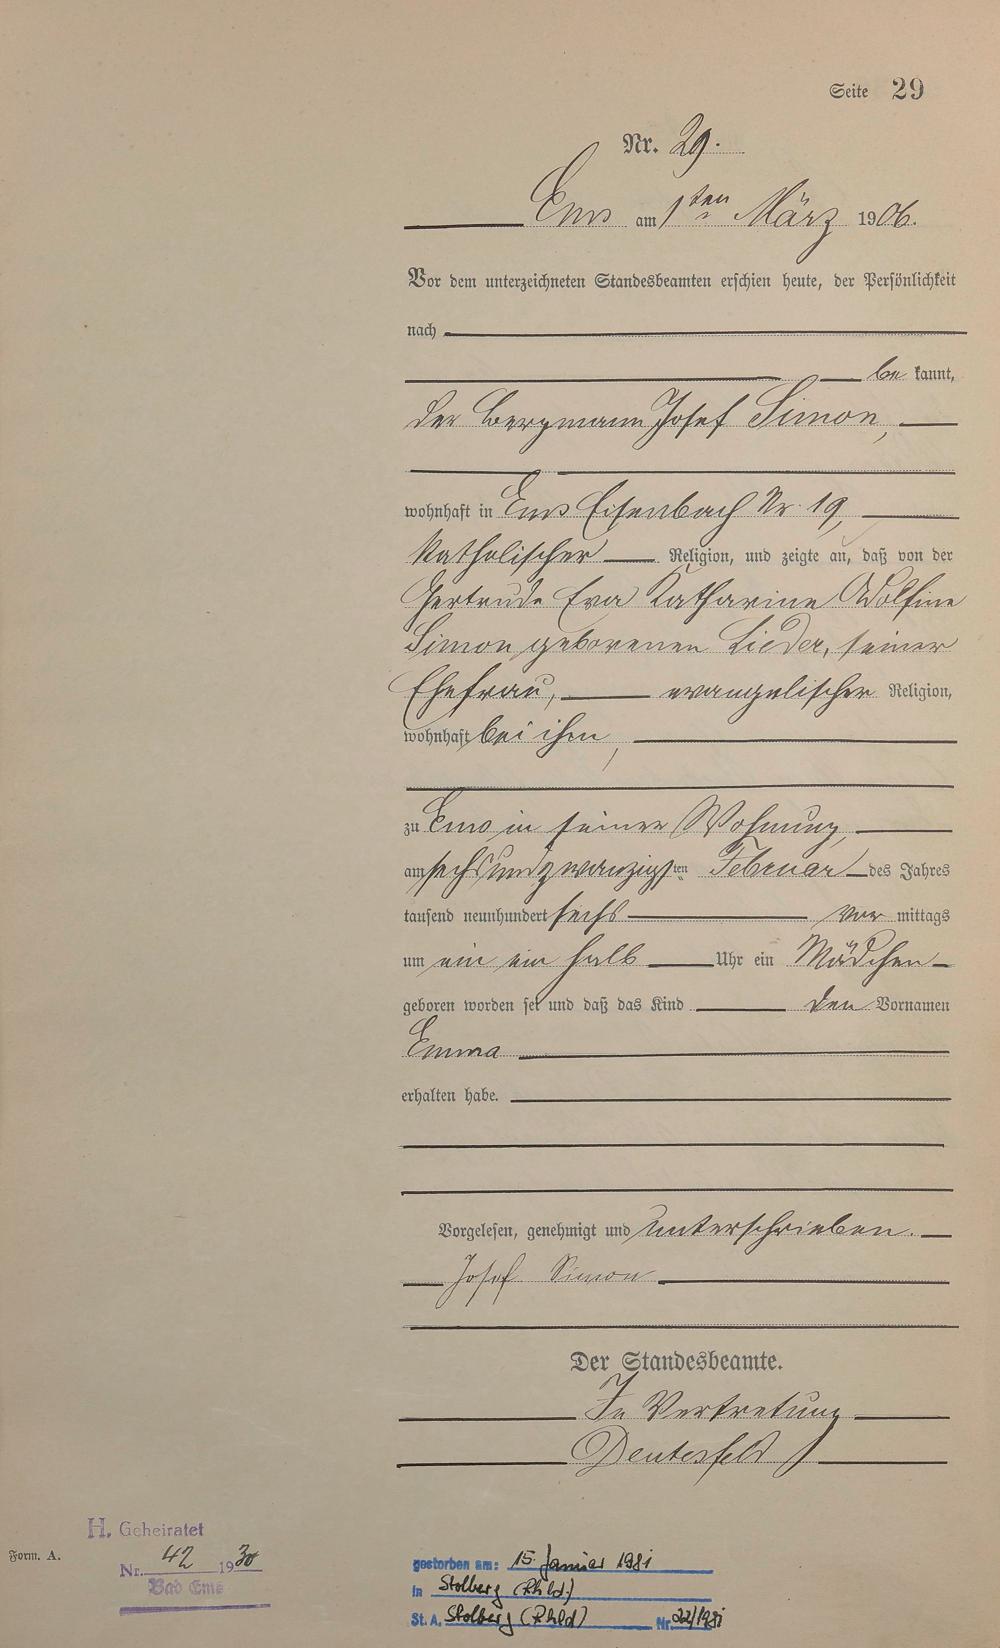 Seite 29
Nr. 29.
Ems am 1ten März 1906.
Vor dem unterzeichneten Standesbeamten erschien heute, der Persönlichkeit
nach
be kannt,
der Bergmann Josef Simon,
wohnhaft in Ems Eisenbach Nr 19,
katholischer Religion, und zeigte an, daß von der
Gertrude Eva Katharine Adolfine
Simon geborenen Lieder, seiner
Ehefrau, evangelischer Religion,
wohnhaft bei ihm,
zu Ems in seiner Wohnung,
am sechsundzwanzigsten Februar des Jahres
tausend neunhundert sechs vor mittags
um ein ein halb Uhr ein Mädchen
geboren worden sei und daß das Kind den Vornamen
Emma
erhalten habe.
Vorgelesen, genehmigt und unterschrieben.
Josef Simon
Der Standesbeamte.
In Vertretung
H. Geheiratet
Nr. 42 1930
Bad Ems
Form. A.
gestorben am: 15. Januar 1981
in Stolberg (Rhld.)
St. A. Stolberg (Rhld) Nr. 22/1981